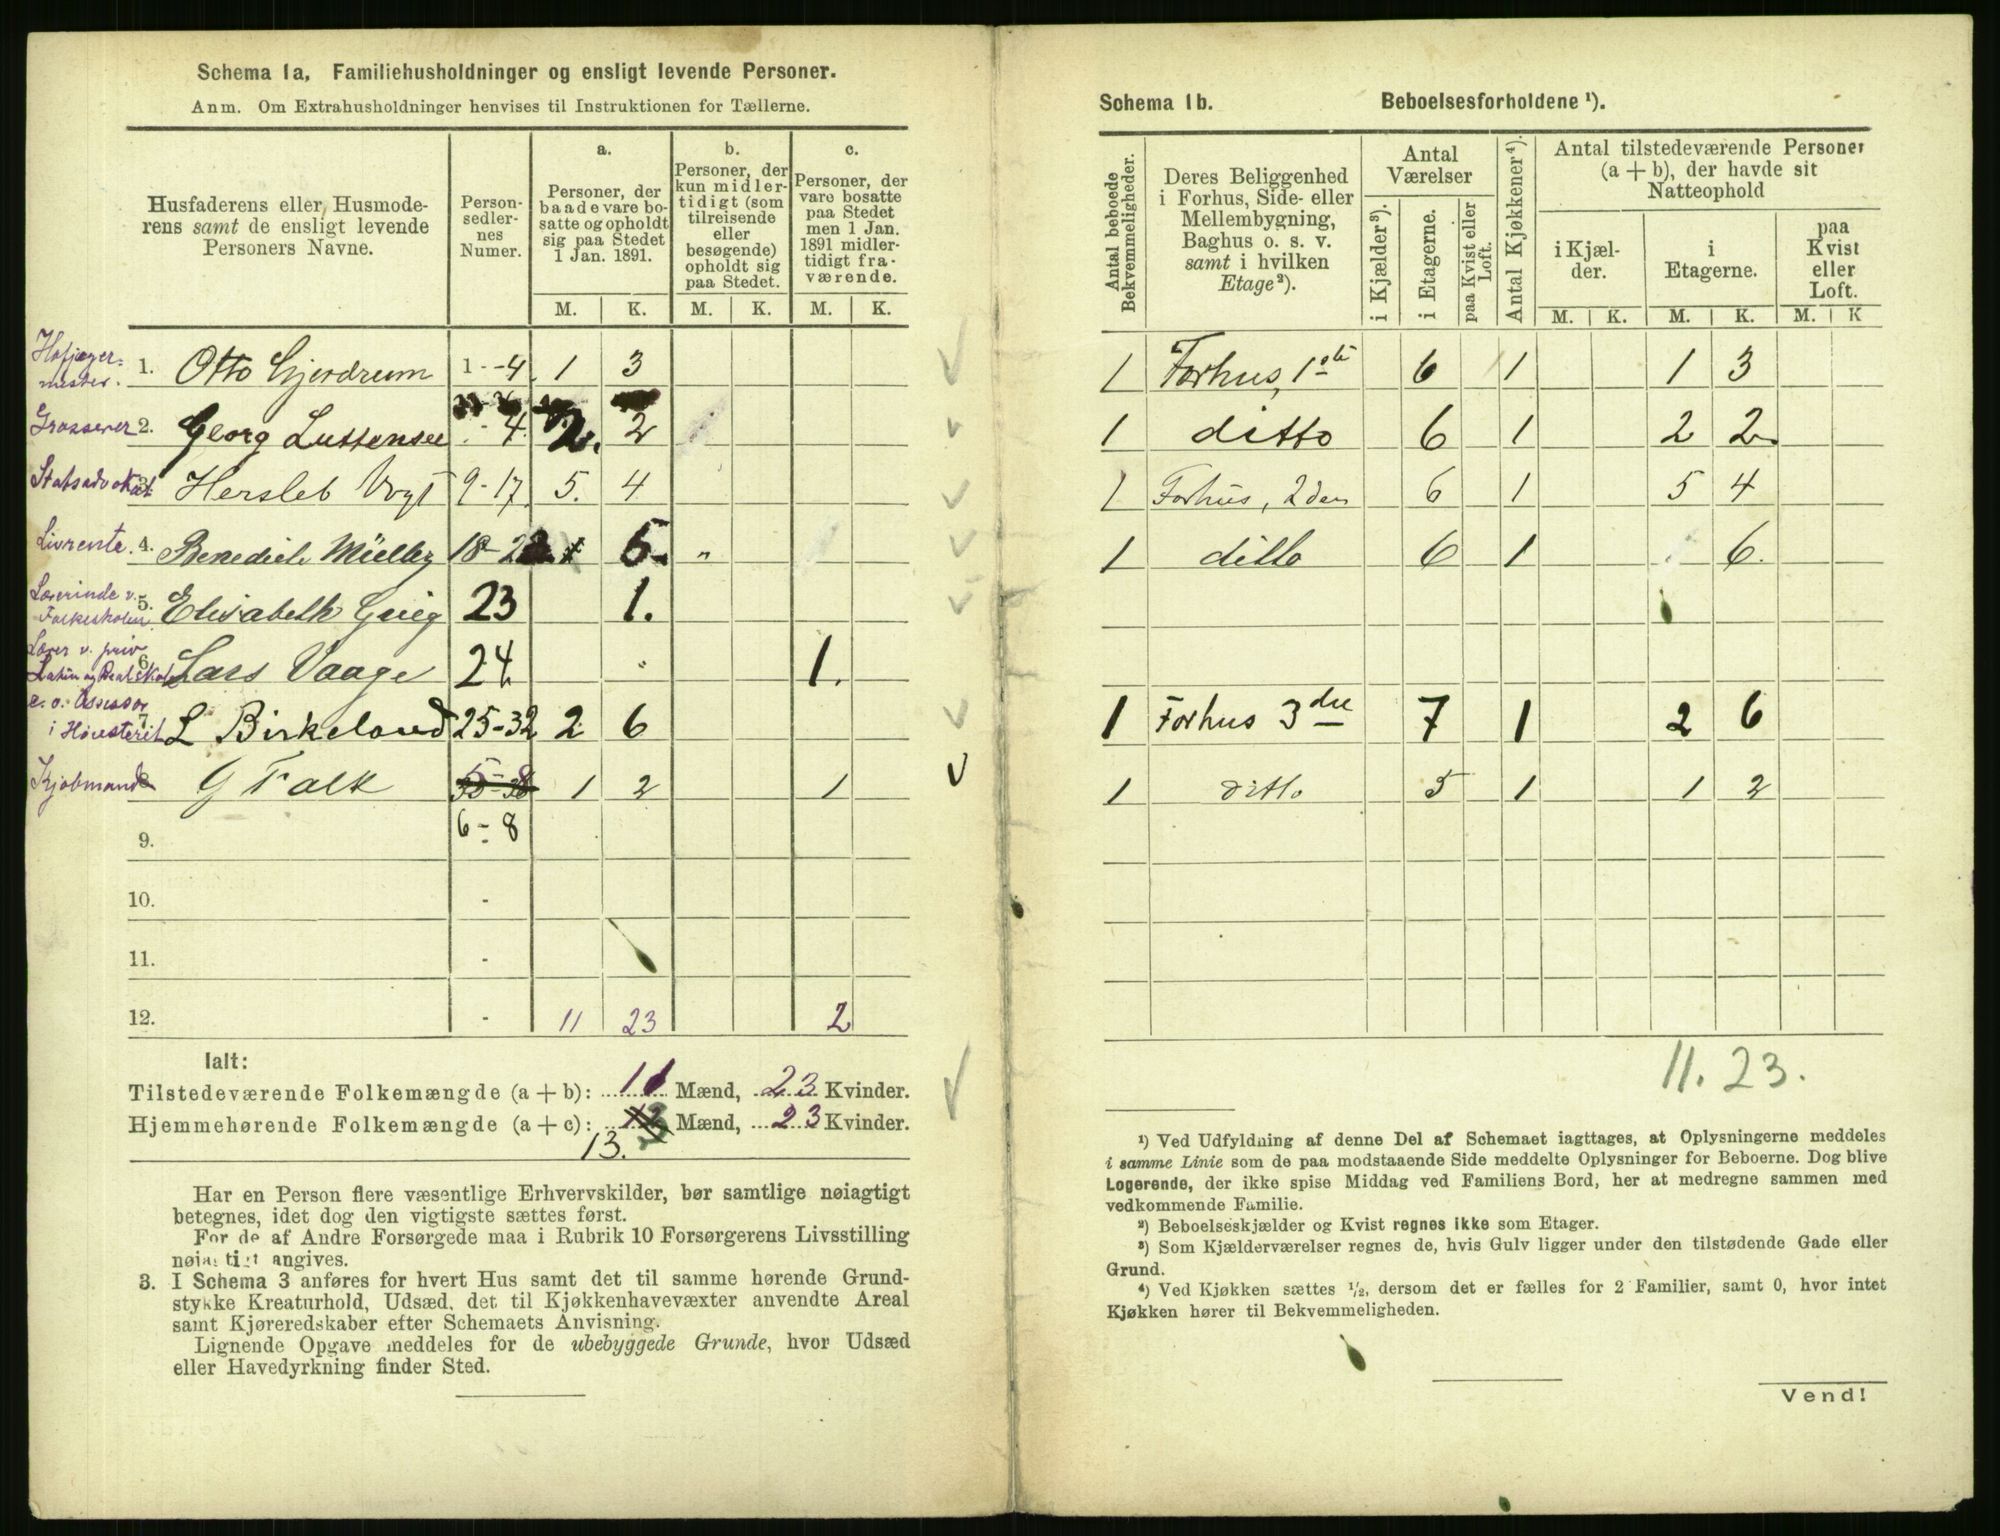 Schema 1a, Familiehusholdninger og ensligt levende Personer.
Anm. Om Extrahusholdninger henvises til Instruktionen for Tællerne.
Husfaderens eller Husmode-
rens samt de ensligt levende
Personers Navne.
Person-
sedler-
nes
Numer.
a.
Personer, der
baade vare bo-
satte og opholdt
sig paa Stedet
1 Jan. 1891.
b.
Personer, der
kun midler-
tidigt (som
tilreisende
eller
besøgende)
opholdt sig
paa Stedet.
c.
Personer, der
vare bosatte
paa Stedet
men 1 Jan.
1891 midler-
tidigt fra-
værende.
M. K. M. K. M. K.
Hofjæger-
mester. 1. Otto Gjerdrum 1 - 4 1 3
Grosserer 2. Georg - 4 2. 2
Statsadvokat 3. Hersleb Vogt 9-17 5. 4
Livrente. 4. Müller 18-22 5. "
Lærerinde v.
Folkeskolen 5. Elisabeth Grieg 23 1.
Lærer v. priv
Latin og Realskole 6. Lars Vaage 24 1.
e. o. Assessor
i Høiesteret 7. L Birkeland 25-32 2 6
Kjøbmand G Falk 5-8 1 2 1
9. 6-8
10. -
11. -
12. - 11 23 2
Ialt:
Tilstedeværende Folkemængde (a + b): 11 Mænd, 23 Kvinder.
Hjemmehørende Folkemængde (a + c): Mænd, 23 Kvinder.
13.
Har en Person flere væsentlige Erhvervskilder, bør samtlige nøiagtigt
betegnes, idet dog den vigtigste sættes først.
For de af Andre Forsørgede maa i Rubrik 10 Forsørgerens Livsstilling
nøiagtigt angives.
3. I Schema 3 anføres for hvert Hus samt det til samme hørende Grund-
stykke Kreaturhold, Udsæd, det til Kjøkkenhavevæxter anvendte Areal
samt Kjøreredskaber efter Schemaets Anvisning.
Lignende Opgave meddeles for de ubebyggede Grunde, hvor Udsæd
eller Havedyrkning finder Sted.
Schema 1b. Beboelsesforholdene ¹).
Antal beboede
Bekvemmeligheder.
Deres Beliggenhed
i Forhus, Side- eller
Mellembygning,
Baghus o. s. v.
samt i hvilken
Etage²).
Antal
Værelser
i Kjælder³).
i Etagerne.
paa Kvist eller
Loft.
Antal Kjøkkener⁴).
Antal tilstedeværende Personer
(a + b), der havde sit
Natteophold
i Kjæl-
der.
i
Etagerne.
paa
Kvist
eller
Loft.
M. K. M. K. M. K
1 Forhus, 1ste 6 1 1 3
1 ditto 6 1 2 2
1 Forhus, 2den 6 1 5 4
1 ditto 6 1 6.
1 Forhus 3die 7 1 2 6
1 ditto 5 1 1 2
11. 23.
¹) Ved Udfyldning af denne Del af Schemaet iagttages, at Oplysningerne meddeles
i samme Linie som de paa modstaaende Side meddelte Oplysninger for Beboerne. Dog blive
Logerende, der ikke spise Middag ved Familiens Bord, her at medregne sammen med
vedkommende Familie.
²) Beboelseskjælder og Kvist regnes ikke som Etager.
³) Som Kjælderværelser regnes de, hvis Gulv ligger under den tilstødende Gade eller
Grund.
⁴) Ved Kjøkken sættes ½, dersom det er fælles for 2 Familier, samt 0, hvor intet
Kjøkken hører til Bekvemmeligheden.
Vend!